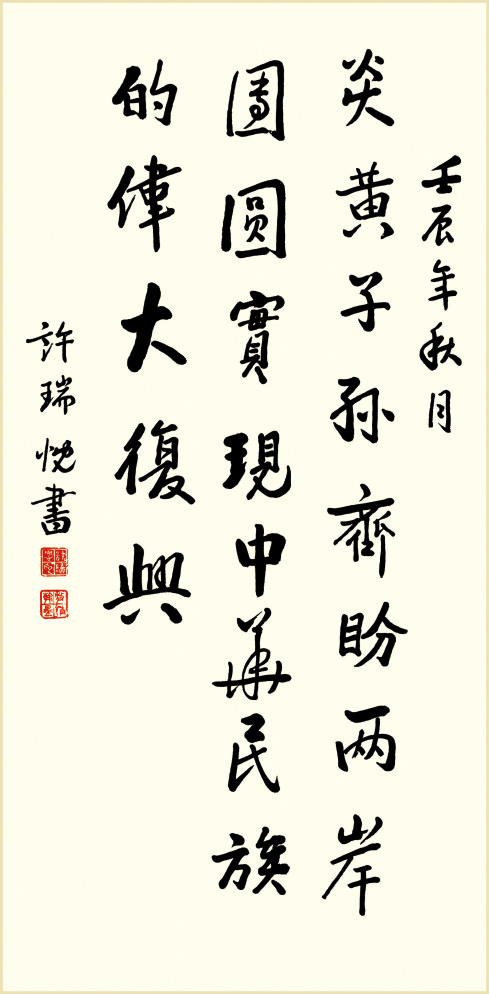 壬辰年秋月
炎黄子孙齊盼两岸
團圓實現中華民族
的偉大復興
許瑞悦書